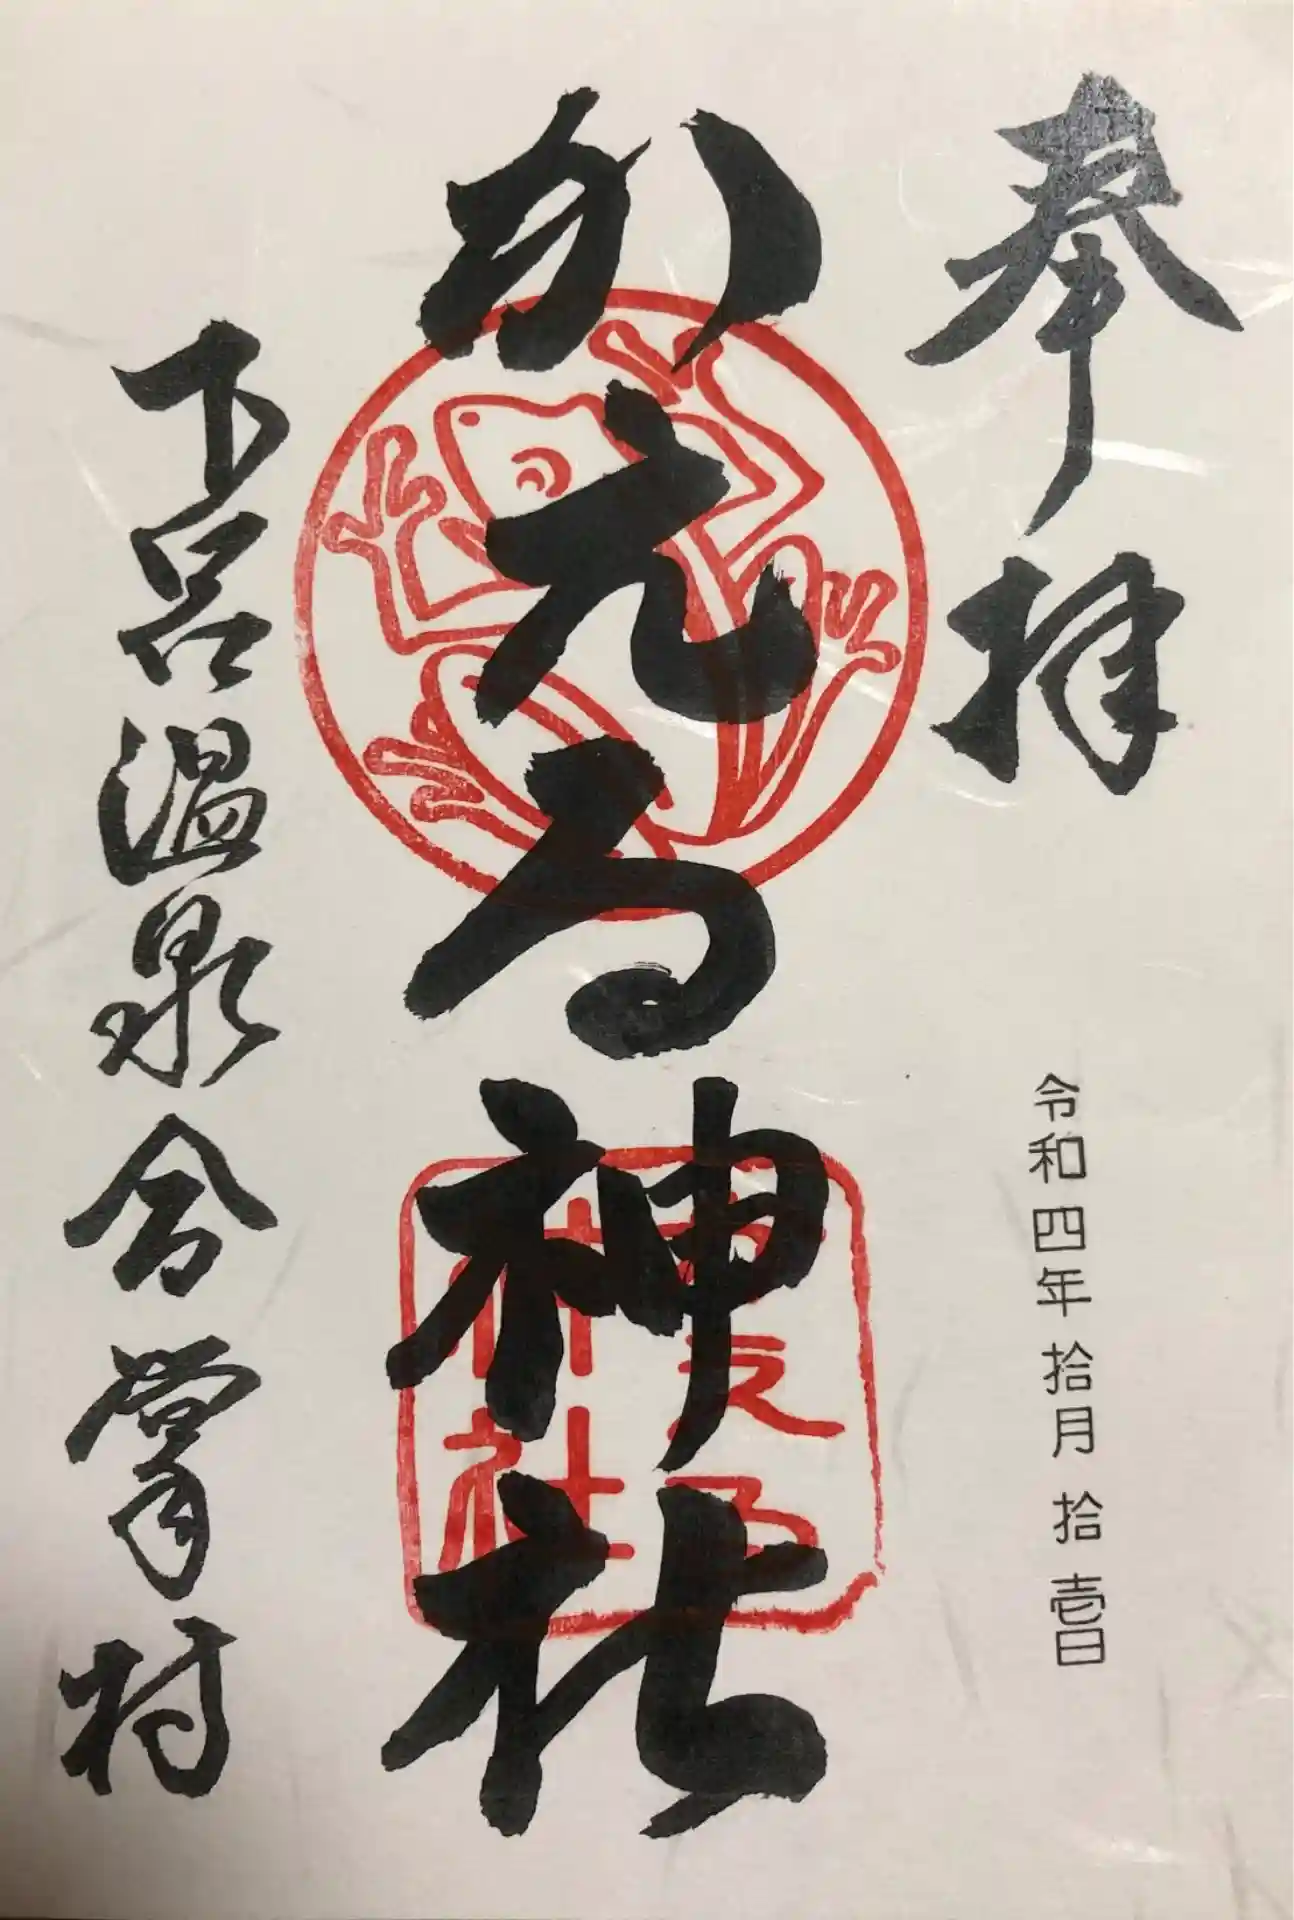 奉拝
令和四年拾月拾壹日
加元る神社
下呂温泉合掌村